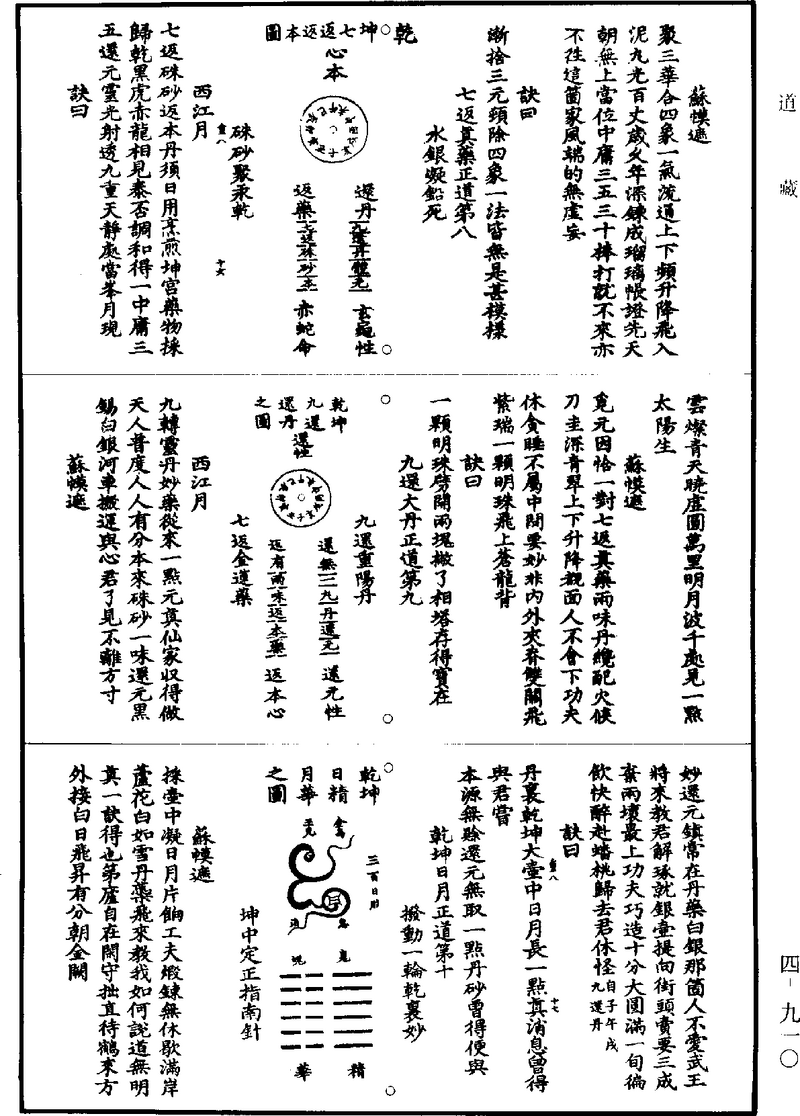 道藏
蘇幙遮
聚三華合四象一氣流通上下頻升降飛入
泥丸光百丈歲久年深鍊成瑠璃帳證先天
朝無上當位中庸三五三十棒打訛不來亦
不徃這箇家風端的無虛妄
訣曰
漸捨三元頭除四象一法皆無是甚模樣
七返真藥正道第八
水銀凝鉛死
乾坤七返返本圖
心本
還丹
九還丹體元
玄龜性
返藥
七返硃砂本
赤蛇命
硃砂聚汞乾
西江月
七返硃砂返本丹須日用烹煎坤宮藥物採
歸乾黑虎赤龍相見泰否調和得一中庸三
五還元靈光射透九重天靜處當峯月現
訣曰
雲燦青天曉虛圓萬里明月波千處見一點
太陽生
蘇幙遮
覔元因恰一對七返真藥兩味丹纔配火候
刀圭深青翠上下升降覿面人不會下功夫
休貪睡不屬中間要妙非內外夾脊雙關飛
紫瑞一顆明珠飛上蒼龍背
訣曰
一顆明珠劈開兩塊撒了相塔存得寶在
九還大丹正道第九
九還重陽丹
乾坤九還還丹之圖
還性
還無
三九丹還元
還元性
返有
兩味返本藥
返本心
七返金蓮藥
西江月
九轉靈丹妙藥從來一點元真仙家収得做
天人普度人人有分本來硃砂一味還元黑
錫白銀河車搬運與心君了見不離方寸
蘇幙遮
妙還元鎮常在丹藥白銀那箇人不愛武王
將來教君解琢就銀壺提向街頭賣要三成
棄兩壞最上功夫巧造十分大圓滿一旬徧
飲快醉赴蟠桃歸去君休怪自子午戌九還丹
訣曰
丹裏乾坤大壺中日月長一點真消息曾得
與君嘗
本源無賒還元無取一點丹砂曾得便與
乾坤日月正道第十
撥動一輪乾裏妙
乾坤日精月華之圖
三百日胎
精
華
坤中定正指南針
蘇幙遮
採壺中凝日月片餉工夫煅鍊無休歇滿岸
蘆花白如雪丹藥飛來教我如何說道無明
真一訣得也第廬自在閑守拙直待鶴來方
外接白日飛昇有分朝金闕
四-九一〇